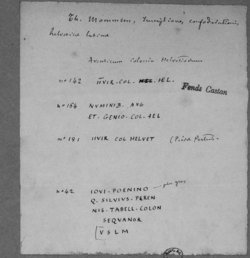 Th. Mommsen, Inscriptiones confoederationis
helveticae latinae
Aventicum colonia Helvetiorum
n° 142 IIVIR. COL. HEL. HEL.
Fonds Castan
n° 154 NUMINIB. AUG
ET. GENIO. COL. HEL
n° 191 IIVIR COL HELVET
n° 42 IOVI. POENINO
Q. SILVIUS. PEREN
NIS. TABELL. COLON
SEQUANOR
V S L M